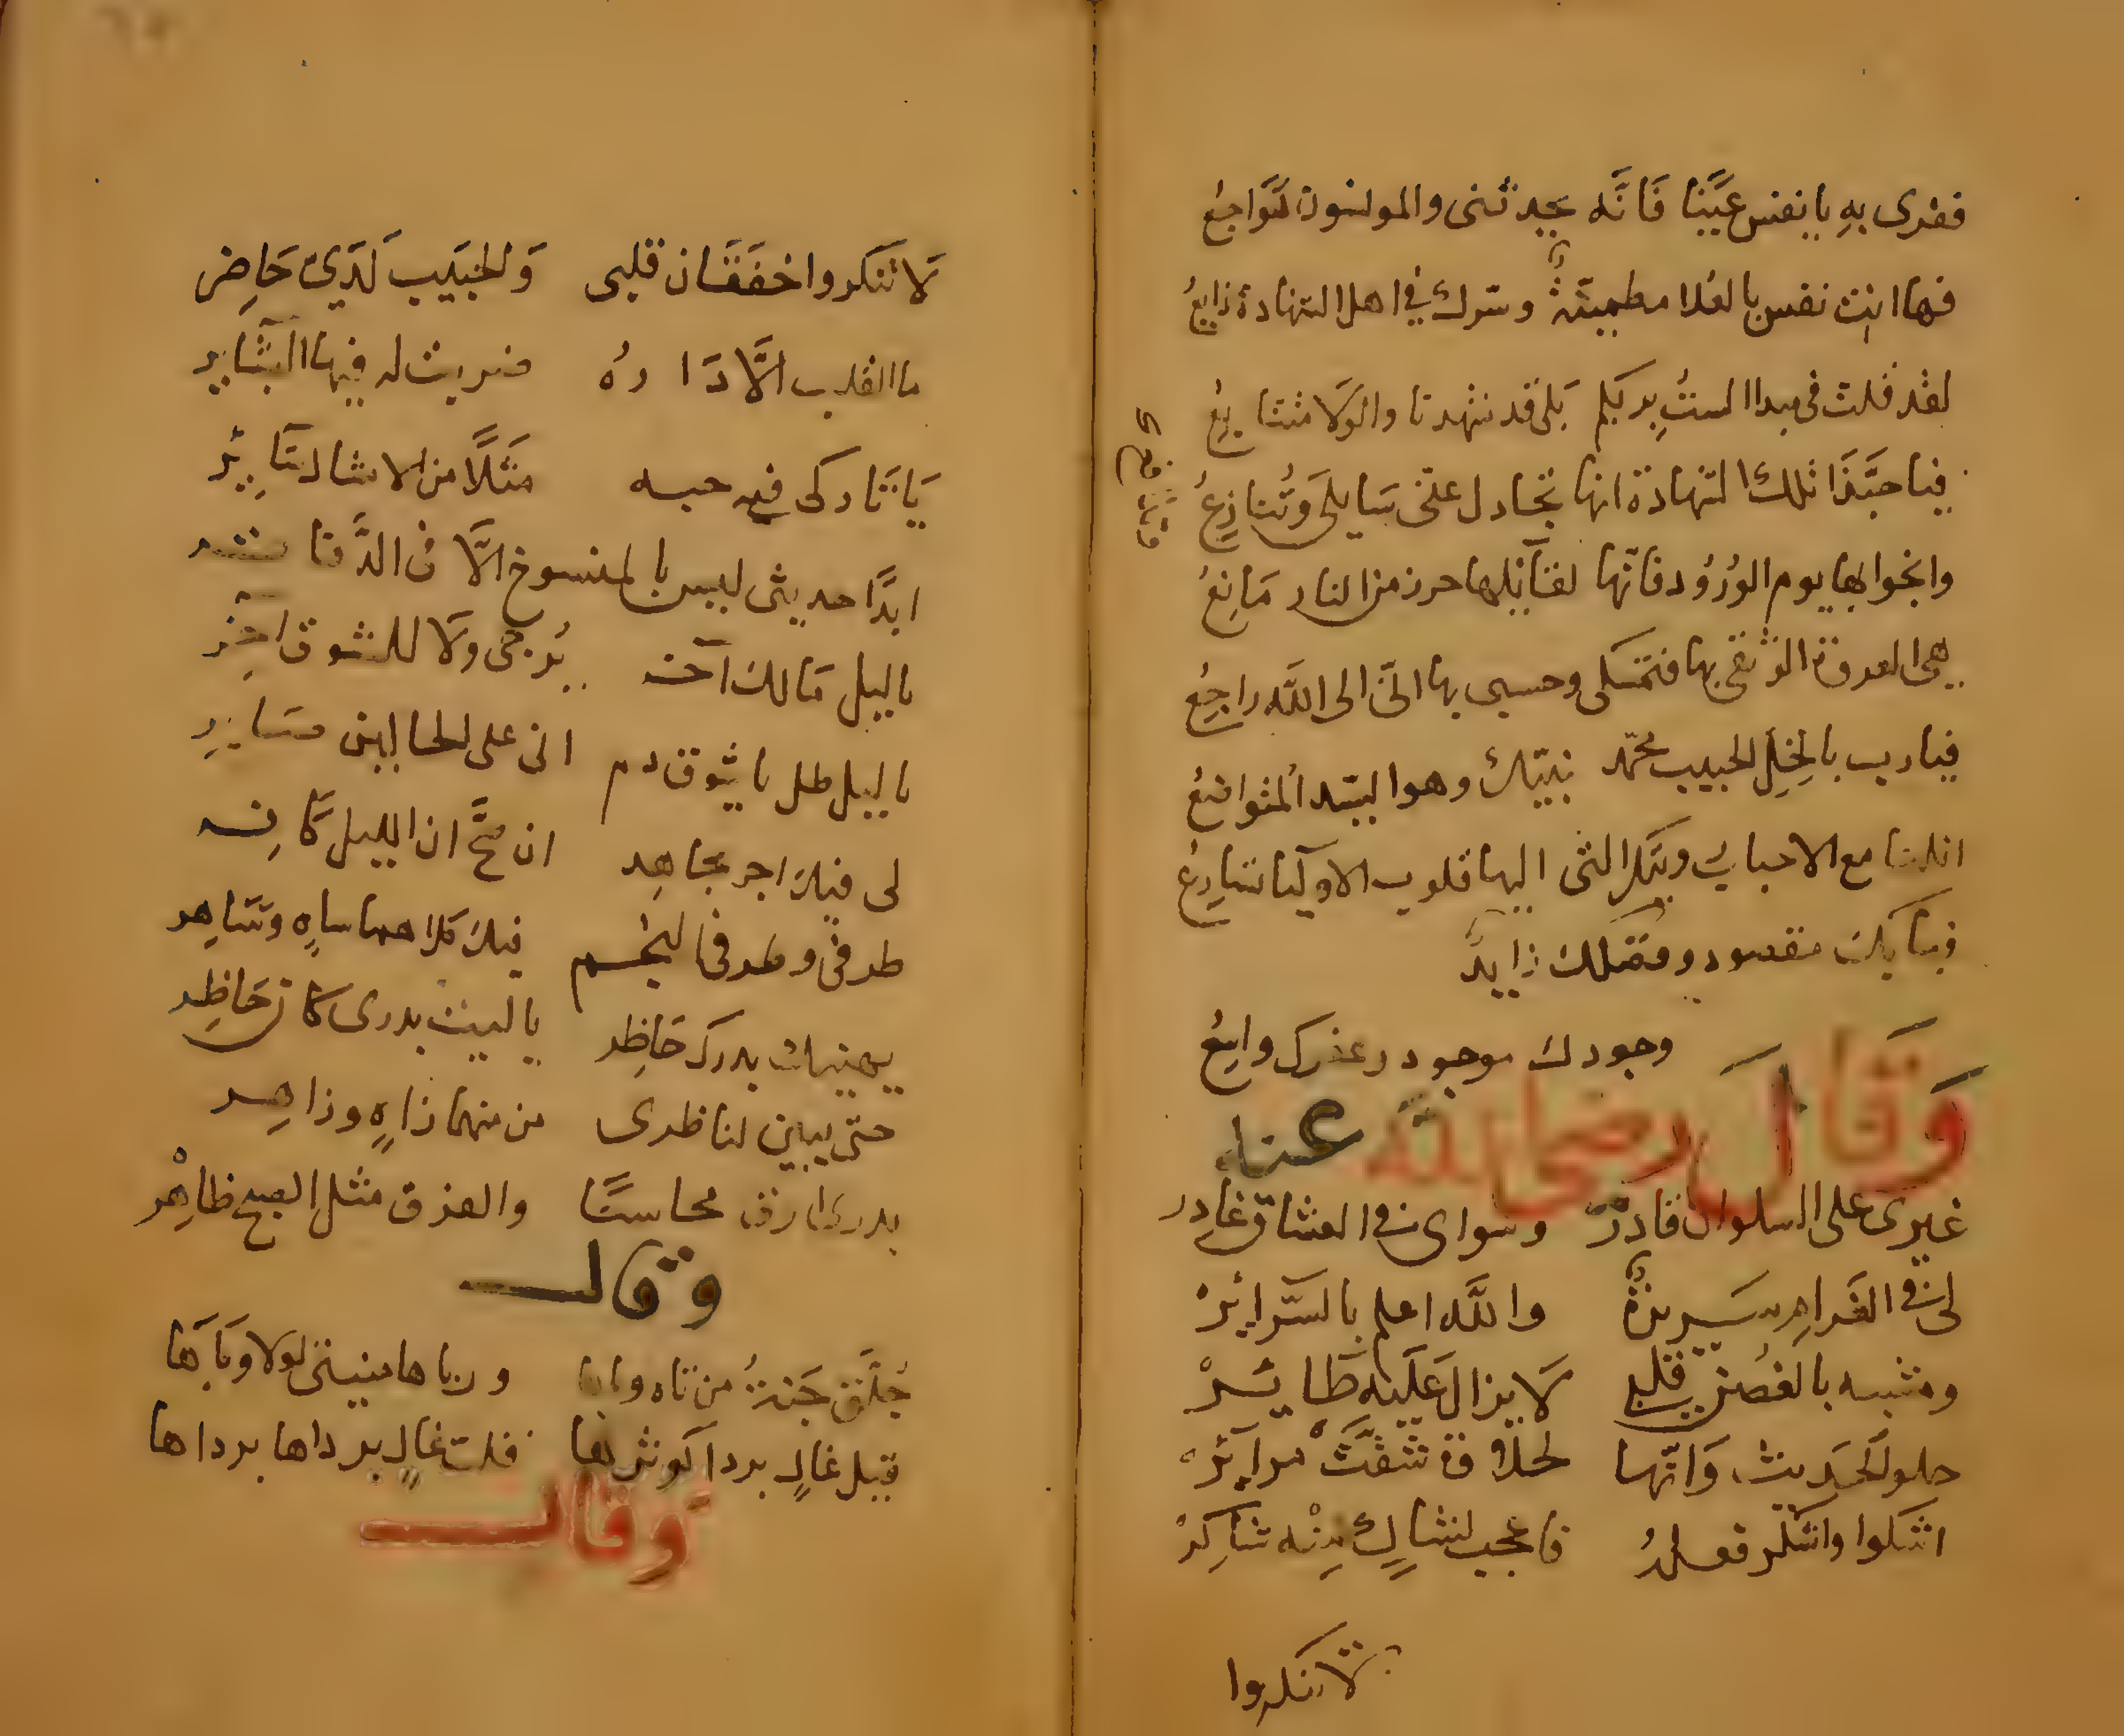 فقرى به يا نفس عيّنا فَانَّه يحدثنى والمولسون لَهَواجعُ
فها انت نفس بالعُلا مطمينّةٌ وسّرك فى اهل الشهادة ذايعُ
لقد قلت فى مبدا الستُ بربكم بَلى قد شهدنا والوَلا متتابعُ
فيا حبَّذَا تلك الشهادة انها تجادل عنى سَايلى وَتُنازعُ
وانجوا بها يوم الوُرُود فانّها لقائلها حرز من النار مَانعُ
هى العروة الوثقى بها فتمسكى وحسبى بها انّى الى اللَّه راجعُ
فيا رب بالخِلِّ الحبيب محمّد نبيّك وهو السيّد المتواضعُ
انلنا مع الاحباب رويتك التى اليها قلوب الاوليا تسارعُ
فبابك مقصود وفضلك زايدٌ
وجودك موجود وعفوك واسعُ
وَقَالَ رضى اللَّه عنه
غيرى على السلوان قادرْ وسواى فى العشاق غادر
لى فى الغرام سَريرةٌ واللَّه اعلم بالسَّرائرْ
ومشبه بالغُصن قلبى لَا يزال عَلَيه طَائرْ
حلو الحَديث وَانّها لحلاوة شقَّتْ مرائرْ
اشكوا واشكر فعلهُ فاعجب لشاكٍ مِنْه شاكرْ
لا تنكروا
لَا تنكروا خفَقَان قلبى وَالحَبيب لَدَيّ حَاضِر
ما القلب الَّا دَارهُ ضربت له فيها البشَاير
يَا تَاركى فى حبه مَثَلًا من الامثال سَايرْ
ابدًا حديثى ليس بالمنسوخ الَّا فى الدَّفاتر
يا ليل مَا لك آخر يُرجى ولا للشوق اخِر
يا ليل طل يا شوق دم انى على الحالين صَابر
لى فيك اجر مجاهِد ان صَحَّ ان الليل كَافِر
طرفى وطرف النجم فيك كلاهما ساهٍ وسَاهِر
يهنيك بدرك حَاضر يا ليت بدرى كان حَاضر
حتى يبين لناظرى من منهما زاهٍ وزاهِر
بدرى ارق محاسنًا والفرق مثل الصبح ظاهرْ
وقال
جُلَّق جَنةُ من تاه وباها ورباها منيتى لولا وبَاها
قيل غالٍ بردا كوثرها قلت غالٍ برداها برداها
وَقال